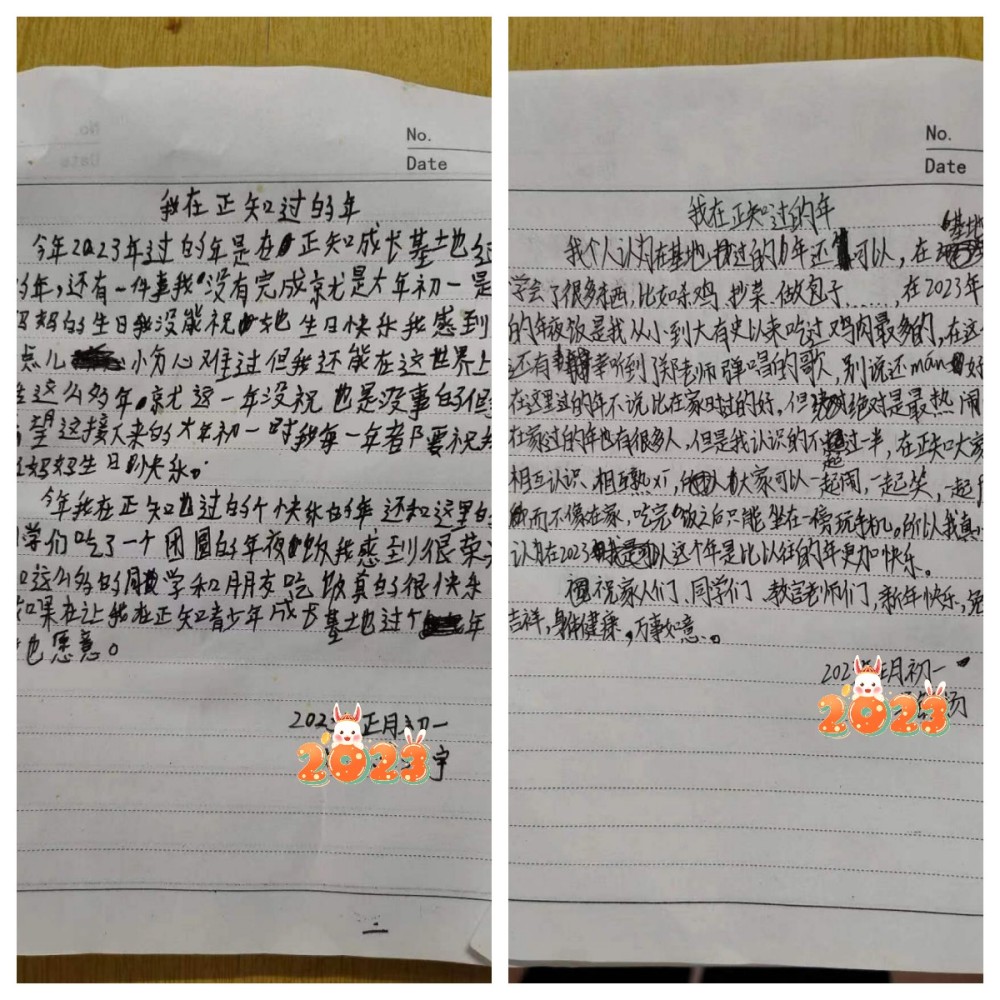 No.
Date
我在正知过的年
今年2023年过的年是在正知成长基地过
的年,还有一件事我没有完成就是大年初一是
妈妈的生日我没能祝她生日快乐我感到
点儿小伤心难过但我还能在这世界上
这么多年,就这一年没祝也是没事的但
望这接下来的大年初一时我每一年都要祝
妈妈生日快乐。
今年我在正知也过的个快乐的年还和这里的
同学们吃了一个团圆的年夜饭我感到很荣
这么多的同学和朋友吃饭真的很快乐
如果在让我在正知青少年成长基地过个年
也愿意。
202 正月初一
2023
宇
No.
Date
我在正知过的年
我个人认为在基地过的年还可以,在基地
学会了很多东西,比如杀鸡、炒菜、做包子......,在2023年
的年夜饭是我从小到大有史以来吃过鸡肉最多的,在这
还有幸听到了郑老师弹唱的歌,别说还mán好
在这里过的年不说比在家时过的好,但绝对是最热闹
在家过的年也有很多人,但是我认识的不超过一半,在正知大家
相互认识、相互熟习,大家可以一起闹,一起笑,一起
而不像在家,吃完饭之后只能坐在一榜玩手机。所以我真
认为在2023这个年是比以往的年更加快乐。
祝家人们、同学们、教官老师们,新年快乐,兔
吉祥,身体健康,万事如意。
202 正月初一
2023
汤